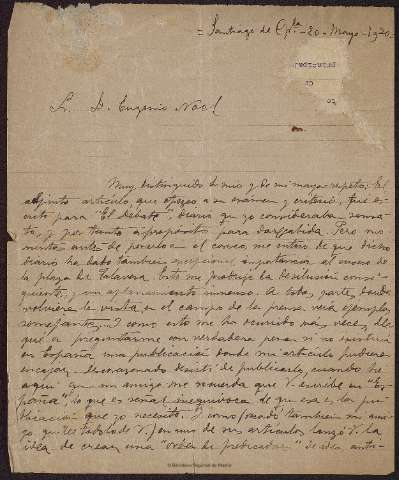 = Santiago de Cpla - 20 - Mayo - 1920 =
Sr. D. Eugenio Noel
Muy distinguido Sr mio y de mi mayor respeto: El
adjunto artículo que ofrezco a su examen y criterio, fue es-
crito para "El debate" diario que yo consideraba sensa-
to, y por tanto a propósito para darle cabida. Pero mo-
mentos antes de ponerlo en el correo, me entero de que dicho
diario ha dado tambien excepcional importancia al suceso de
la plaza de Talavera. Esto me produjo la desilusión consi-
guiente, y un aplanamiento inmenso. A todas partes donde
volviera la vista en el campo de la prensa, veía ejemplos
semejantes. Y como esto me ha ocurrido más veces, llegué
a preguntarme con verdadera pena si no existiría
en España una publicación donde mi artículo pudiera
encajar. Descorazonado desistí de publicarlo, cuando he
aquí que un amigo me recuerda que V. escribe en "Es-
paña" lo que es señal inequívoca de que esa es la pu-
blicación que yo necesito. Y como
idea de crear una "orden de predicadores" de ideas anti-
© Biblioteca Regional de Madrid